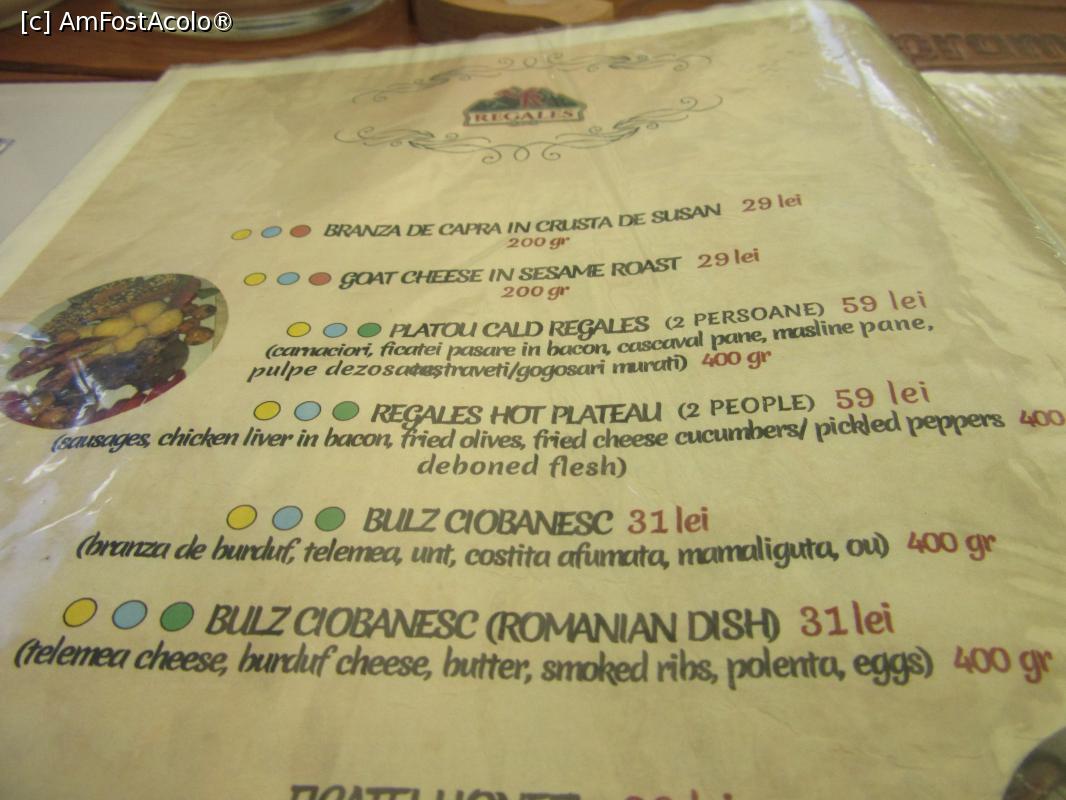 [c] AmFostAcolo®
REGALES
BRANZA DE CAPRA IN CRUSTA DE SUSAN 29 lei
200 gr
GOAT CHEESE IN SESAME ROAST 29 lei
200 gr
PLATOU CALD REGALES (2 PERSOANE) 59 lei
(carnaciori, ficatei pasare in bacon, cascaval pane, masline pane,
pulpe dezosate, castraveti/gogosari murati) 400 gr
REGALES HOT PLATEAU (2 PEOPLE) 59 lei
(sausages, chicken liver in bacon, fried olives, fried cheese cucumbers/ pickled peppers 400
deboned flesh)
BULZ CIOBANESC 31 lei
(branza de burduf, telemea, unt, costita afumata, mamaliguta, ou) 400 gr
BULZ CIOBANESC (ROMANIAN DISH) 31 lei
(telemea cheese, burduf cheese, butter, smoked ribs, polenta, eggs) 400 gr